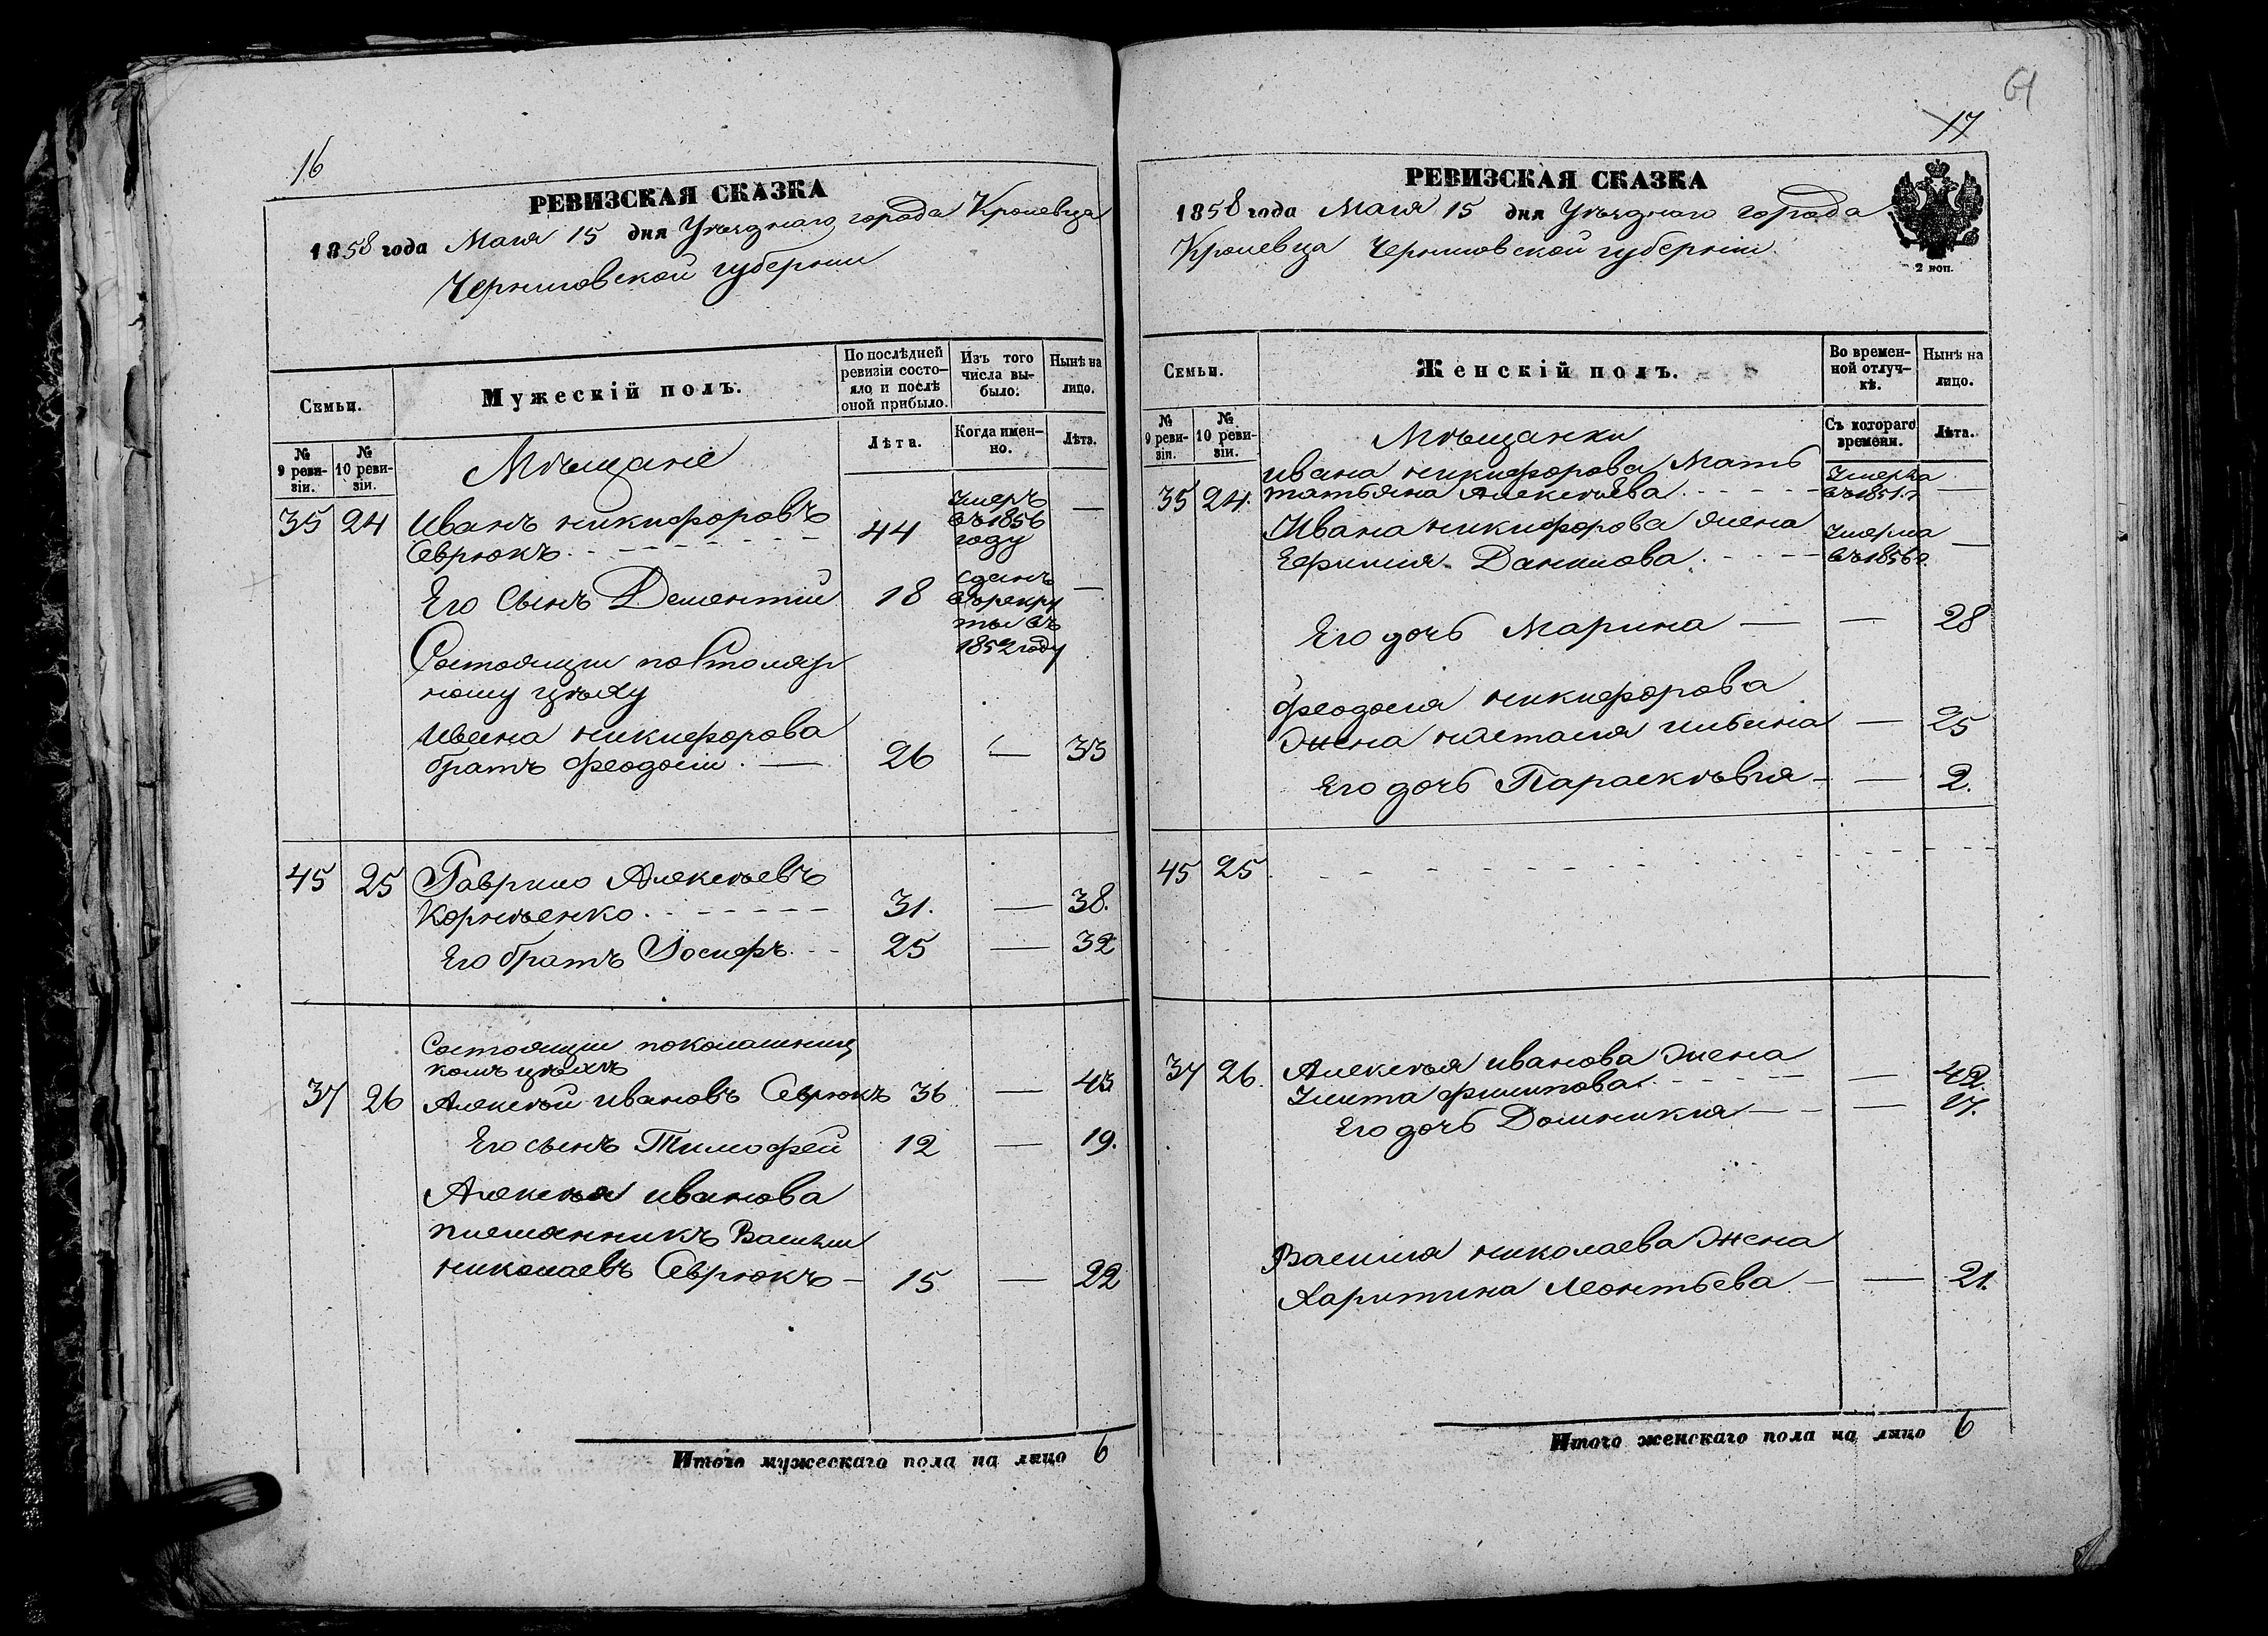 16
РЕВИЗСКАЯ СКАЗКА
1858 года Маія 15 дня Уѣзднаго города Кролевца
Черниговской губерніи
Семьи.
Мужескій полъ.
По послѣдней ревизіи состояло и послѣ оной прибыло.
Изъ того числа выбыло.
Нынѣ на лицо.
№ 9 ревизіи.
№ 10 ревизіи.
Лѣта.
Когда именно.
Лѣта.
Мѣщане
35 24 Иванъ никифоровъ
Севрюкъ 44 умеръ въ 1856 году —
Его Сынъ Дементій 18 сданъ въ рекруты въ 1852 году —
Состоящіи по Столяр
ному цѣху
Ивана никифорова
братъ феодосій — 26 — 33
45 25 Гаврило Алексѣевъ
Корнѣенко 31. — 38.
Его братъ Іосифъ 25 — 32
Состоящіи по
комъ цѣхѣ
37 26 Алексѣй ивановъ Севрюкъ 36 — 43
Его сынъ Тимофей 12 — 19.
Алексѣя иванова
племянникъ Василій
николаевъ Севрюкъ — 15 — 22
Итого мужескаго пола на лицо 6
61
17
РЕВИЗСКАЯ СКАЗКА
1858 года Маія 15 дня Уѣзднаго города
Кролевца Черниговской губерніи
2 коп.
Семьи.
Женскій полъ.
Во временной отлучкѣ.
Нынѣ на лицо.
№ 9 ревизіи.
№ 10 ревизіи.
Съ котораго времени.
Лѣта.
Мѣщанки
ивана никифорова Мать
35 24. татьяна Алексѣева умерла въ 1851 г —
Ивана никифорова жена
Ефимія Данилова умерла въ 1856 г —
Его дочь Марина — — 28
феодосія никифорова
жена настасія ильина — 25
Его дочь Параскѣвія — — 2.
45 25
37 26. Алексѣя иванова жена
Улита филипова — 42.
Его дочь Домникія — — 17.
Василія николаева жена
Харитина Леонтьева — — 21.
Итого женскаго пола на лицо 6